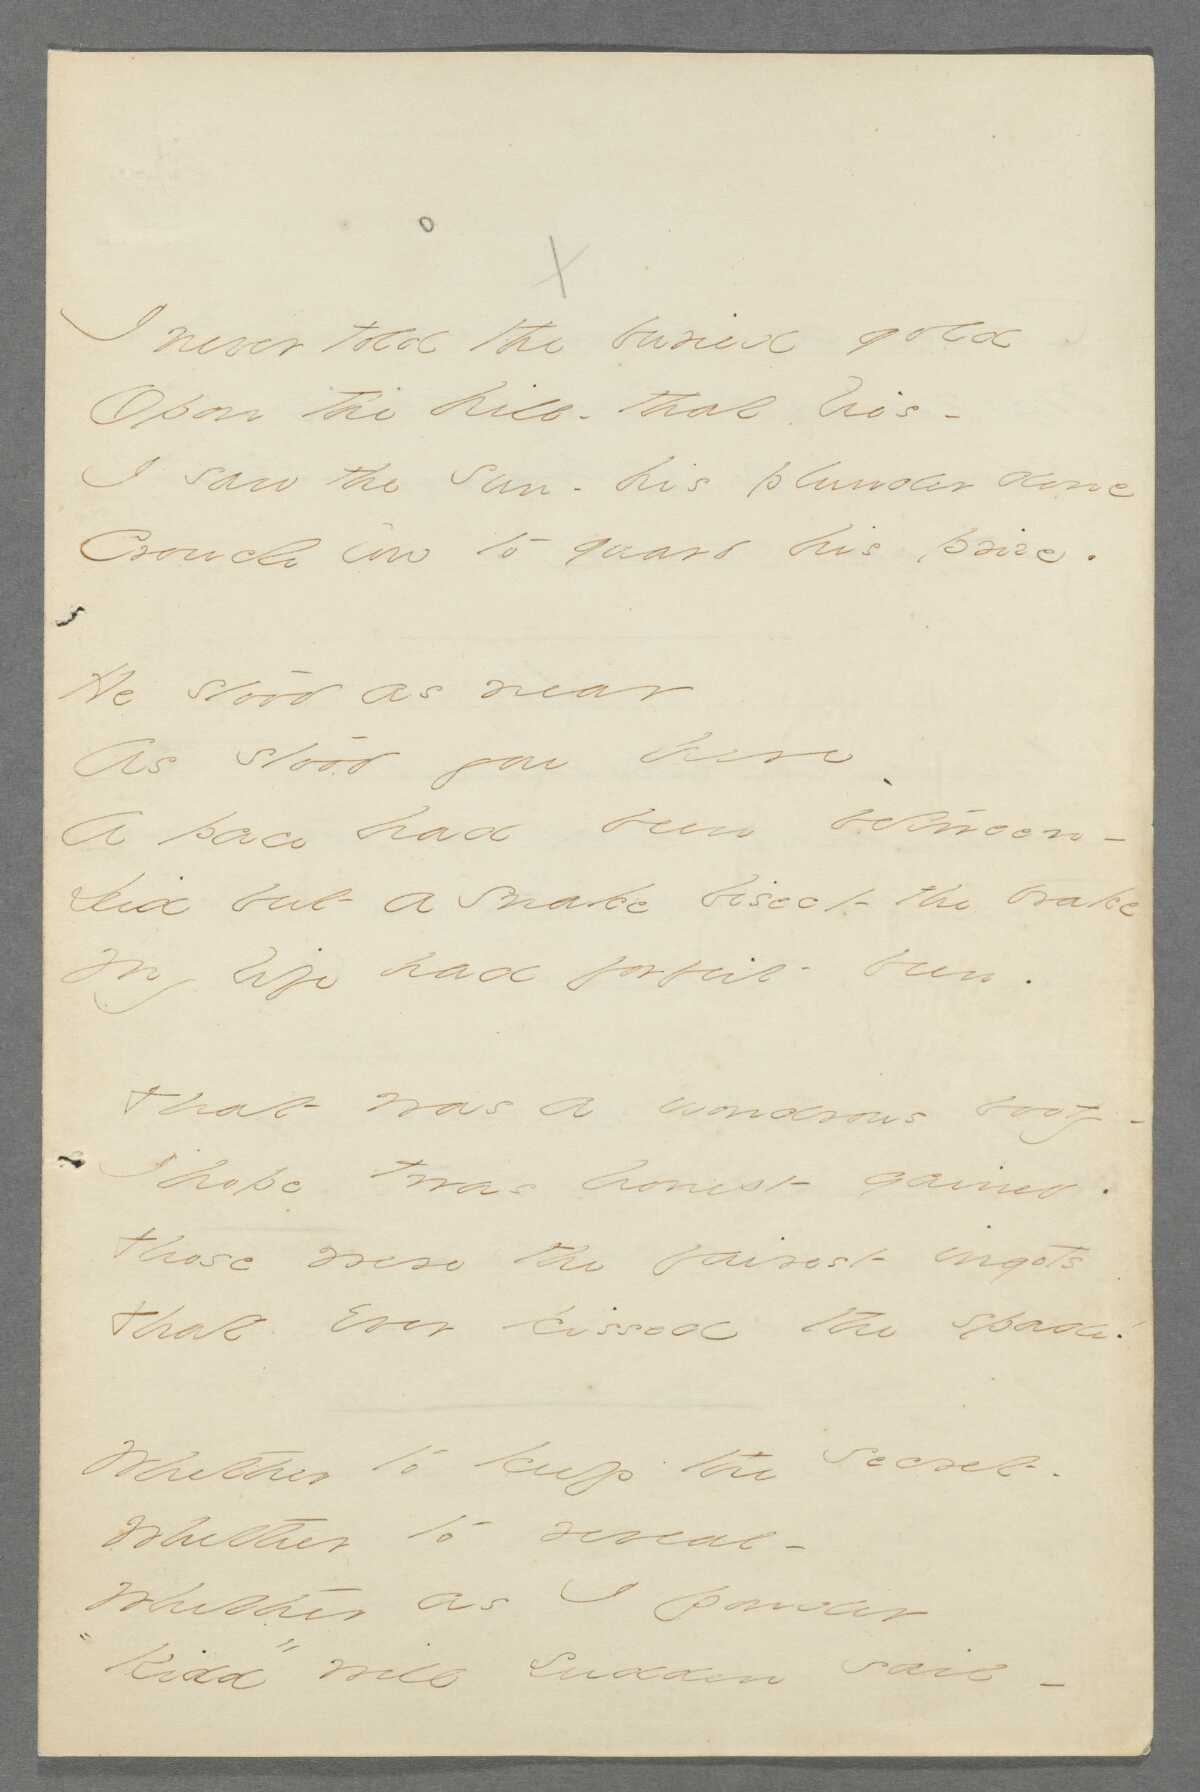 o
X
I never told the buried gold
Opon the hill - that lies -
I saw the Sun - his plunder done
Crouch low to guard his prize.
He stood as near
As stood you here
A pace had been between -
Did but a Snake bisect the brake
My life had forfeit been.
That was a wondrous booty -
I hope 'twas honest gained.
Those were the fairest ingots
That Ever kissed the spade!
Whether to keep the secret -
Whether to reveal -
Whether as I ponder
"Kidd" will sudden sail -